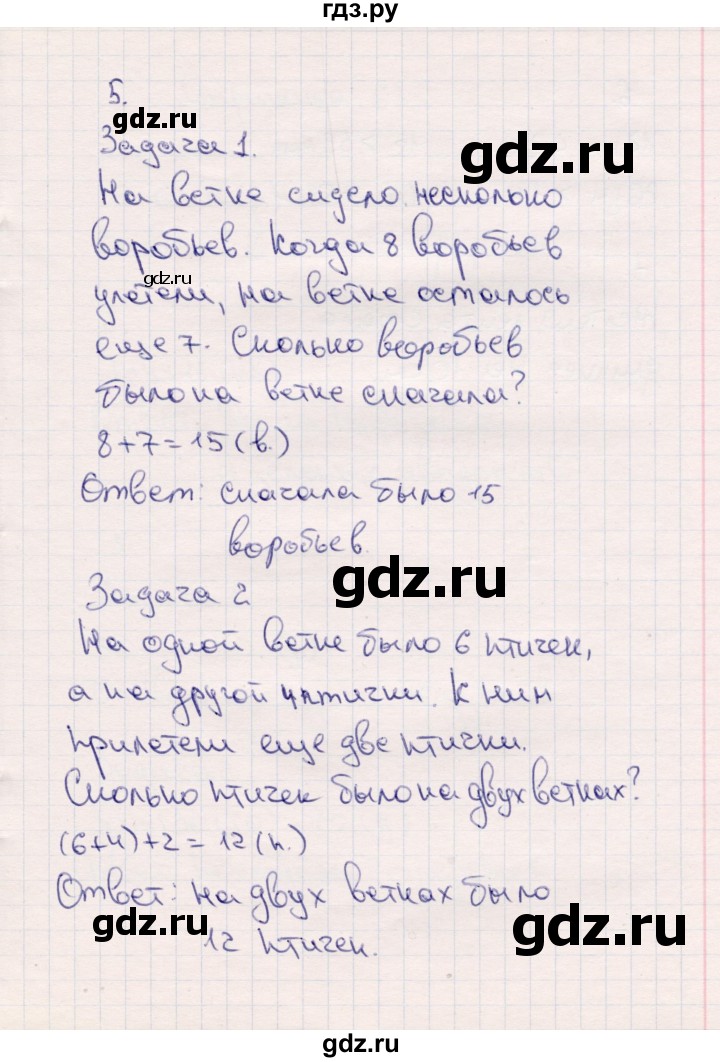 гдз.ру
5.
gdz.ru
Задача 1.
gdz.ru
На ветке сидело несколько
воробьев. Когда 8 воробьев
gdz.ru
улетели, на ветке осталось
еще 7. Сколько воробьев
было на ветке сначала?
8+7=15(в.)
Ответ: сначала было 15
воробьев.
gdz.ru
Задача 2
На одной ветке было 6 птичек,
а на другой 4 птички. К ним
прилетели еще две птички.
Сколько птичек было на двух ветках?
(6+4)+2=12(п.)
Ответ: на двух ветках было
gdz.ru
gdz.ru
12 птичек.
gdz.ru